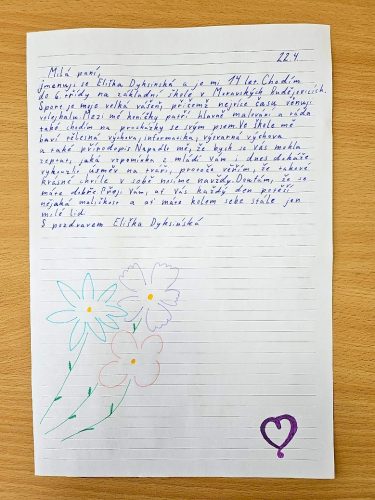 22.4.
Milá paní,
jmenuji se Eliška Dyksinská a je mi 14 let. Chodím
do 6. třídy na základní škole v Moravských Budějovicích.
Sport je moje velká vášeň, přičemž nejvíce času věnuji
volejbalu. Mezi mé koníčky patří hlavně malování a ráda
také chodím na procházky se svým psem. Ve škole mě
baví tělesná výchova, informatika, výtvarná výchova
a také přírodopis. Napadlo mě, že bych se Vás mohla
zeptat, jaká vzpomínka z mládí Vám i dnes dokáže
vykouzlit úsměv na tváři, protože věřím, že takové
krásné chvíle v sobě nosíme navždy. Doufám, že se
máte dobře. Přeji Vám, ať Vás každý den potěší
nějaká maličkost a ať máte kolem sebe stále jen
milé lidi.
S pozdravem Eliška Dyksinská